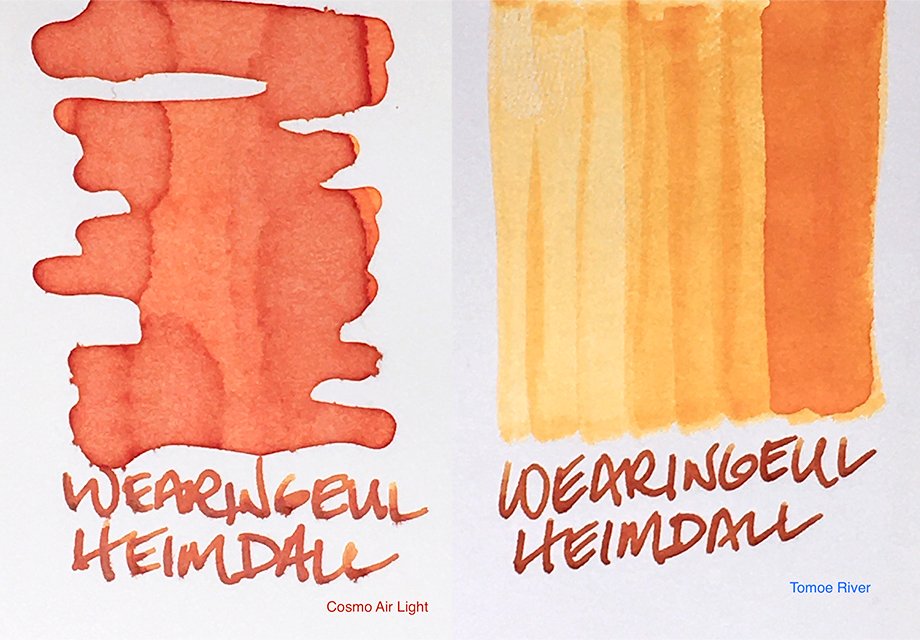 WEARINGEUL
HEIMDALL
Cosmo Air Light
WEARINGEUL
HEIMDALL
Tomoe River